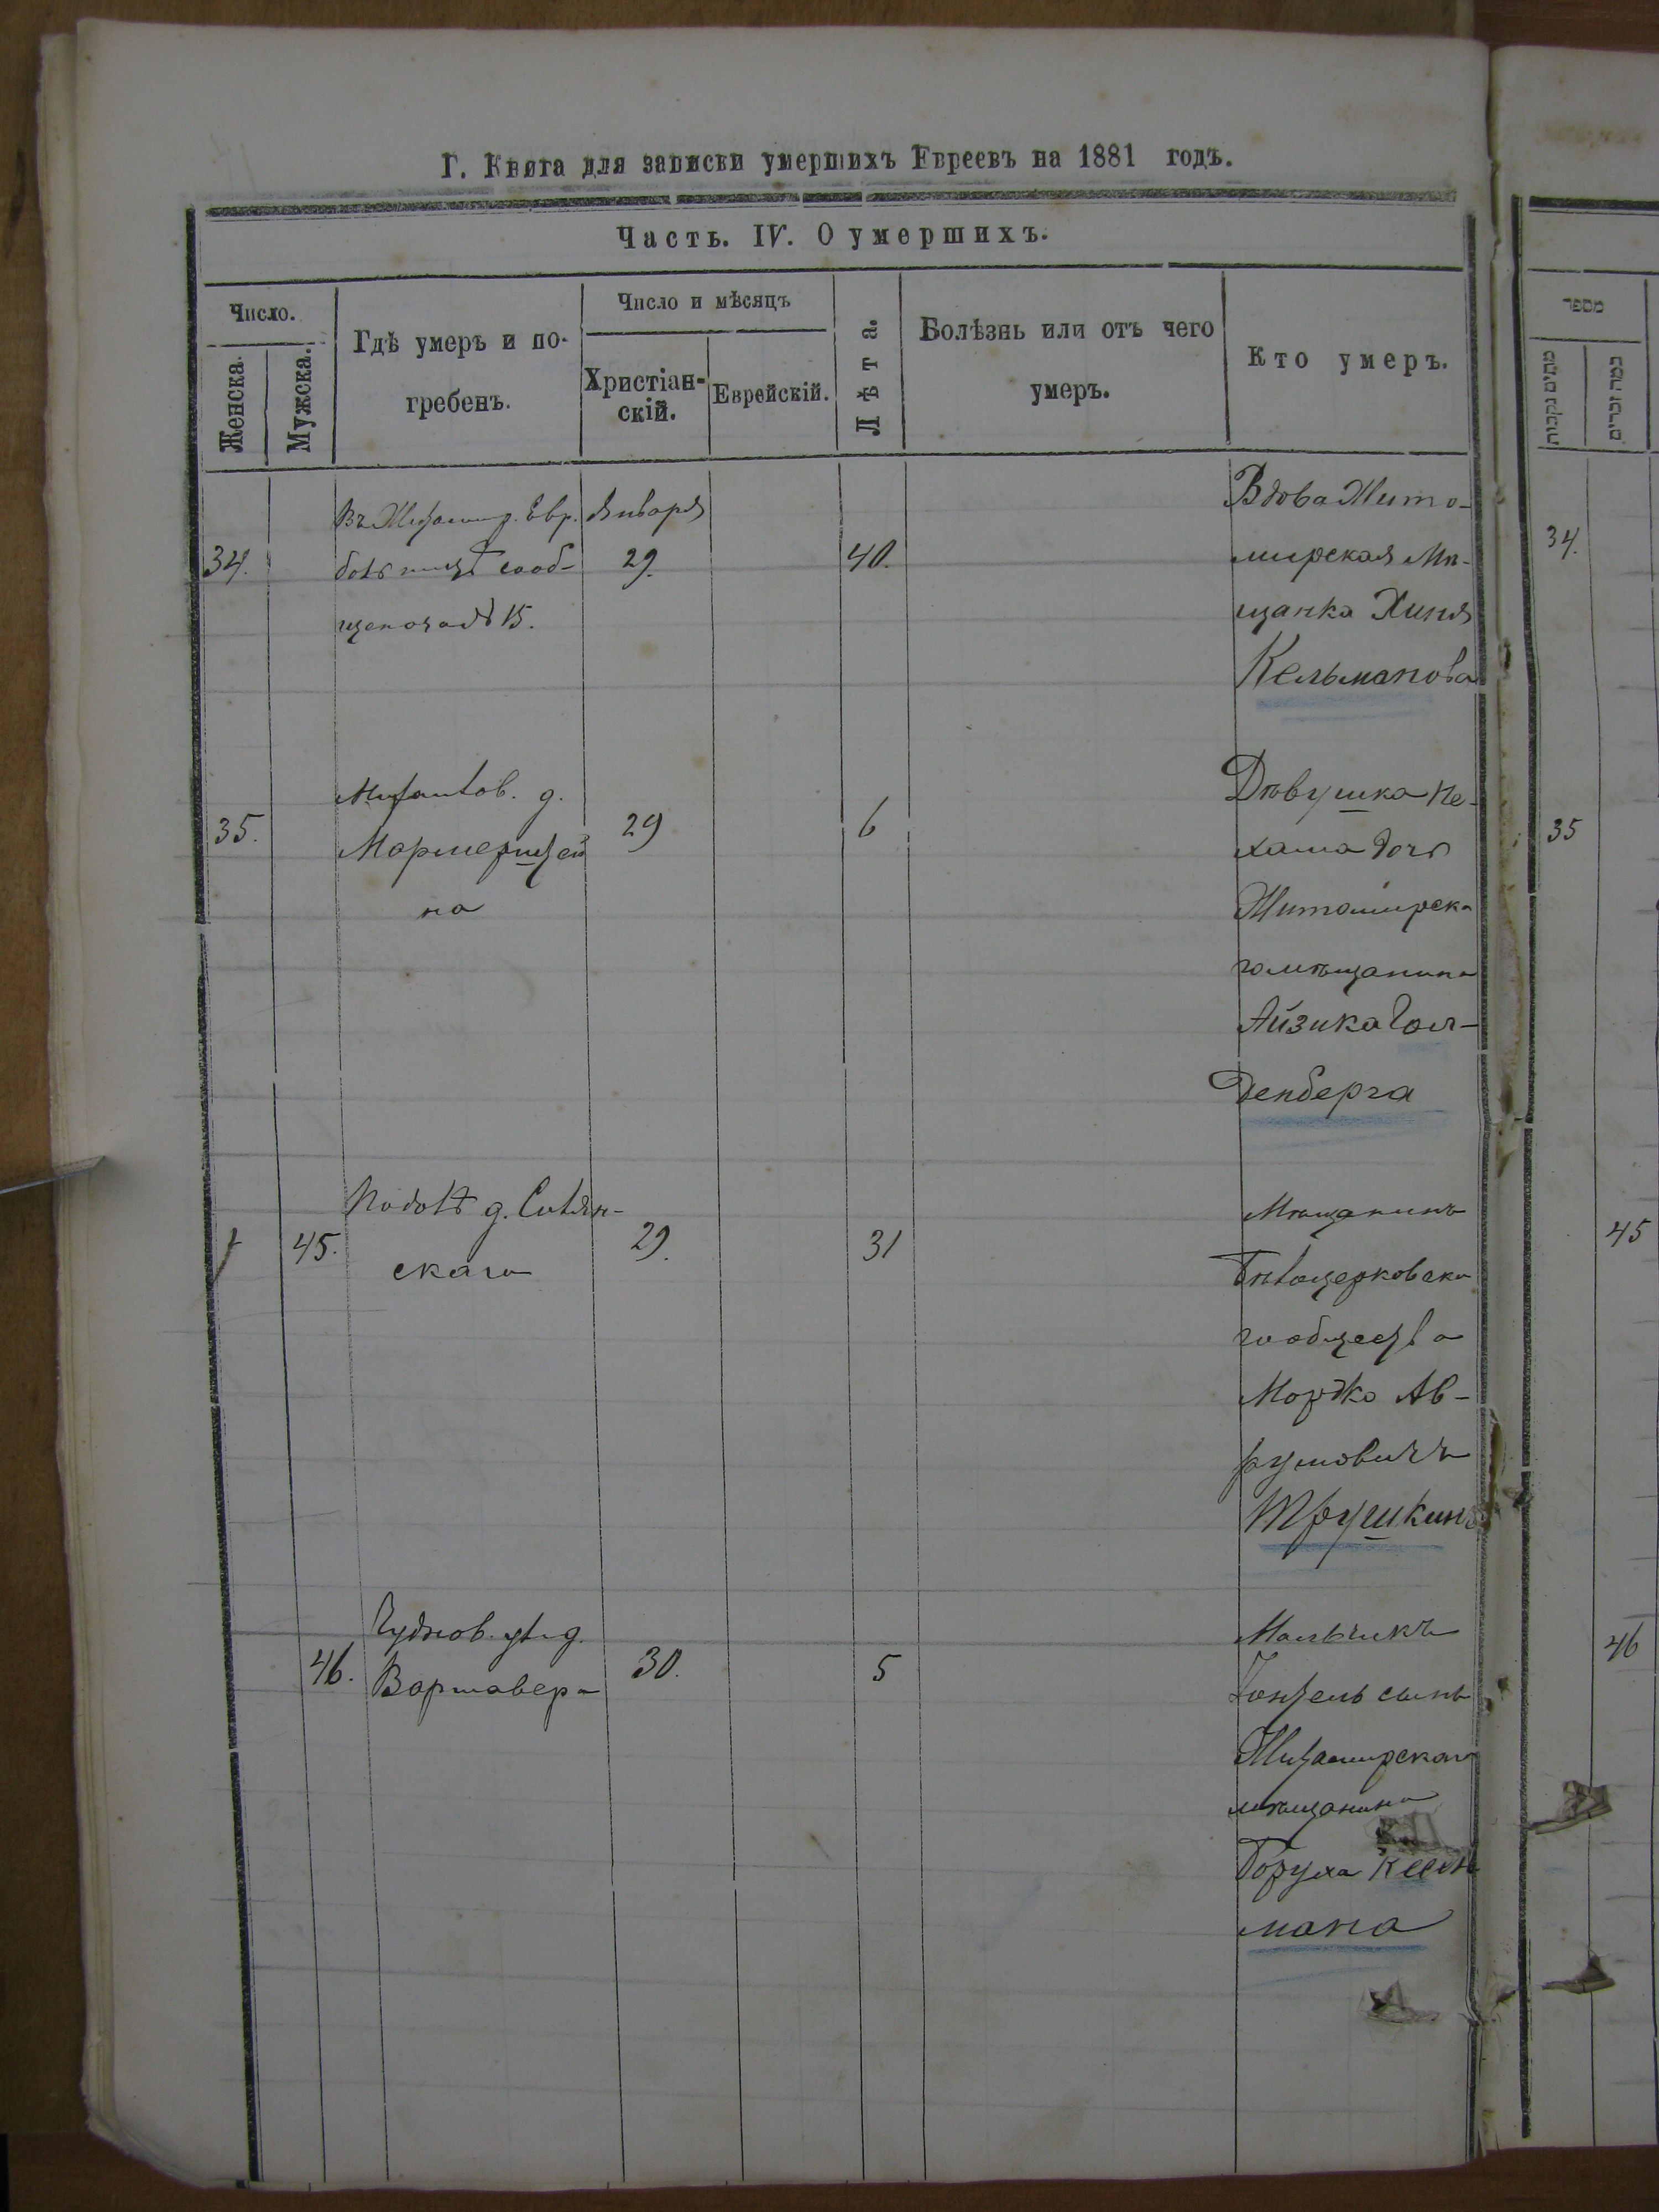 Г. Книга для записки умершихъ Евреевъ на 1881 годъ.
Часть. IV. О умершихъ.
Число.
Женска.
Мужска.
Гдѣ умеръ и по-
гребенъ.
Число и мѣсяцъ
Христіан-
скій.
Еврейскій.
Лѣта.
Болѣзнь или отъ чего
умеръ.
Кто умеръ.
34.
Въ Житомир. Евр.
сооб-
15.
Января
29.
40.
Вдова Жито-
мирская Мѣ-
щанка Хиня
Кельманова
35.
д.
на
29
6
Дѣвушка Не-
хама дочь
Житомирска
го мѣщанина
Айзика Гол-
денберга
45.
д.
скаго
29.
31
Мѣщанинъ
Бѣлоцерковска
го общества
Мордко Ав-
румовичъ
Трушкинъ
46.
Чуднов. ул. д.
Варшавера
30.
5
Мальчикъ
сынъ
Житомирскаго
мѣщанина
Боруха Клей
мана
מספר
כמהם נקבות
כמה זכרים
34.
35
45
46